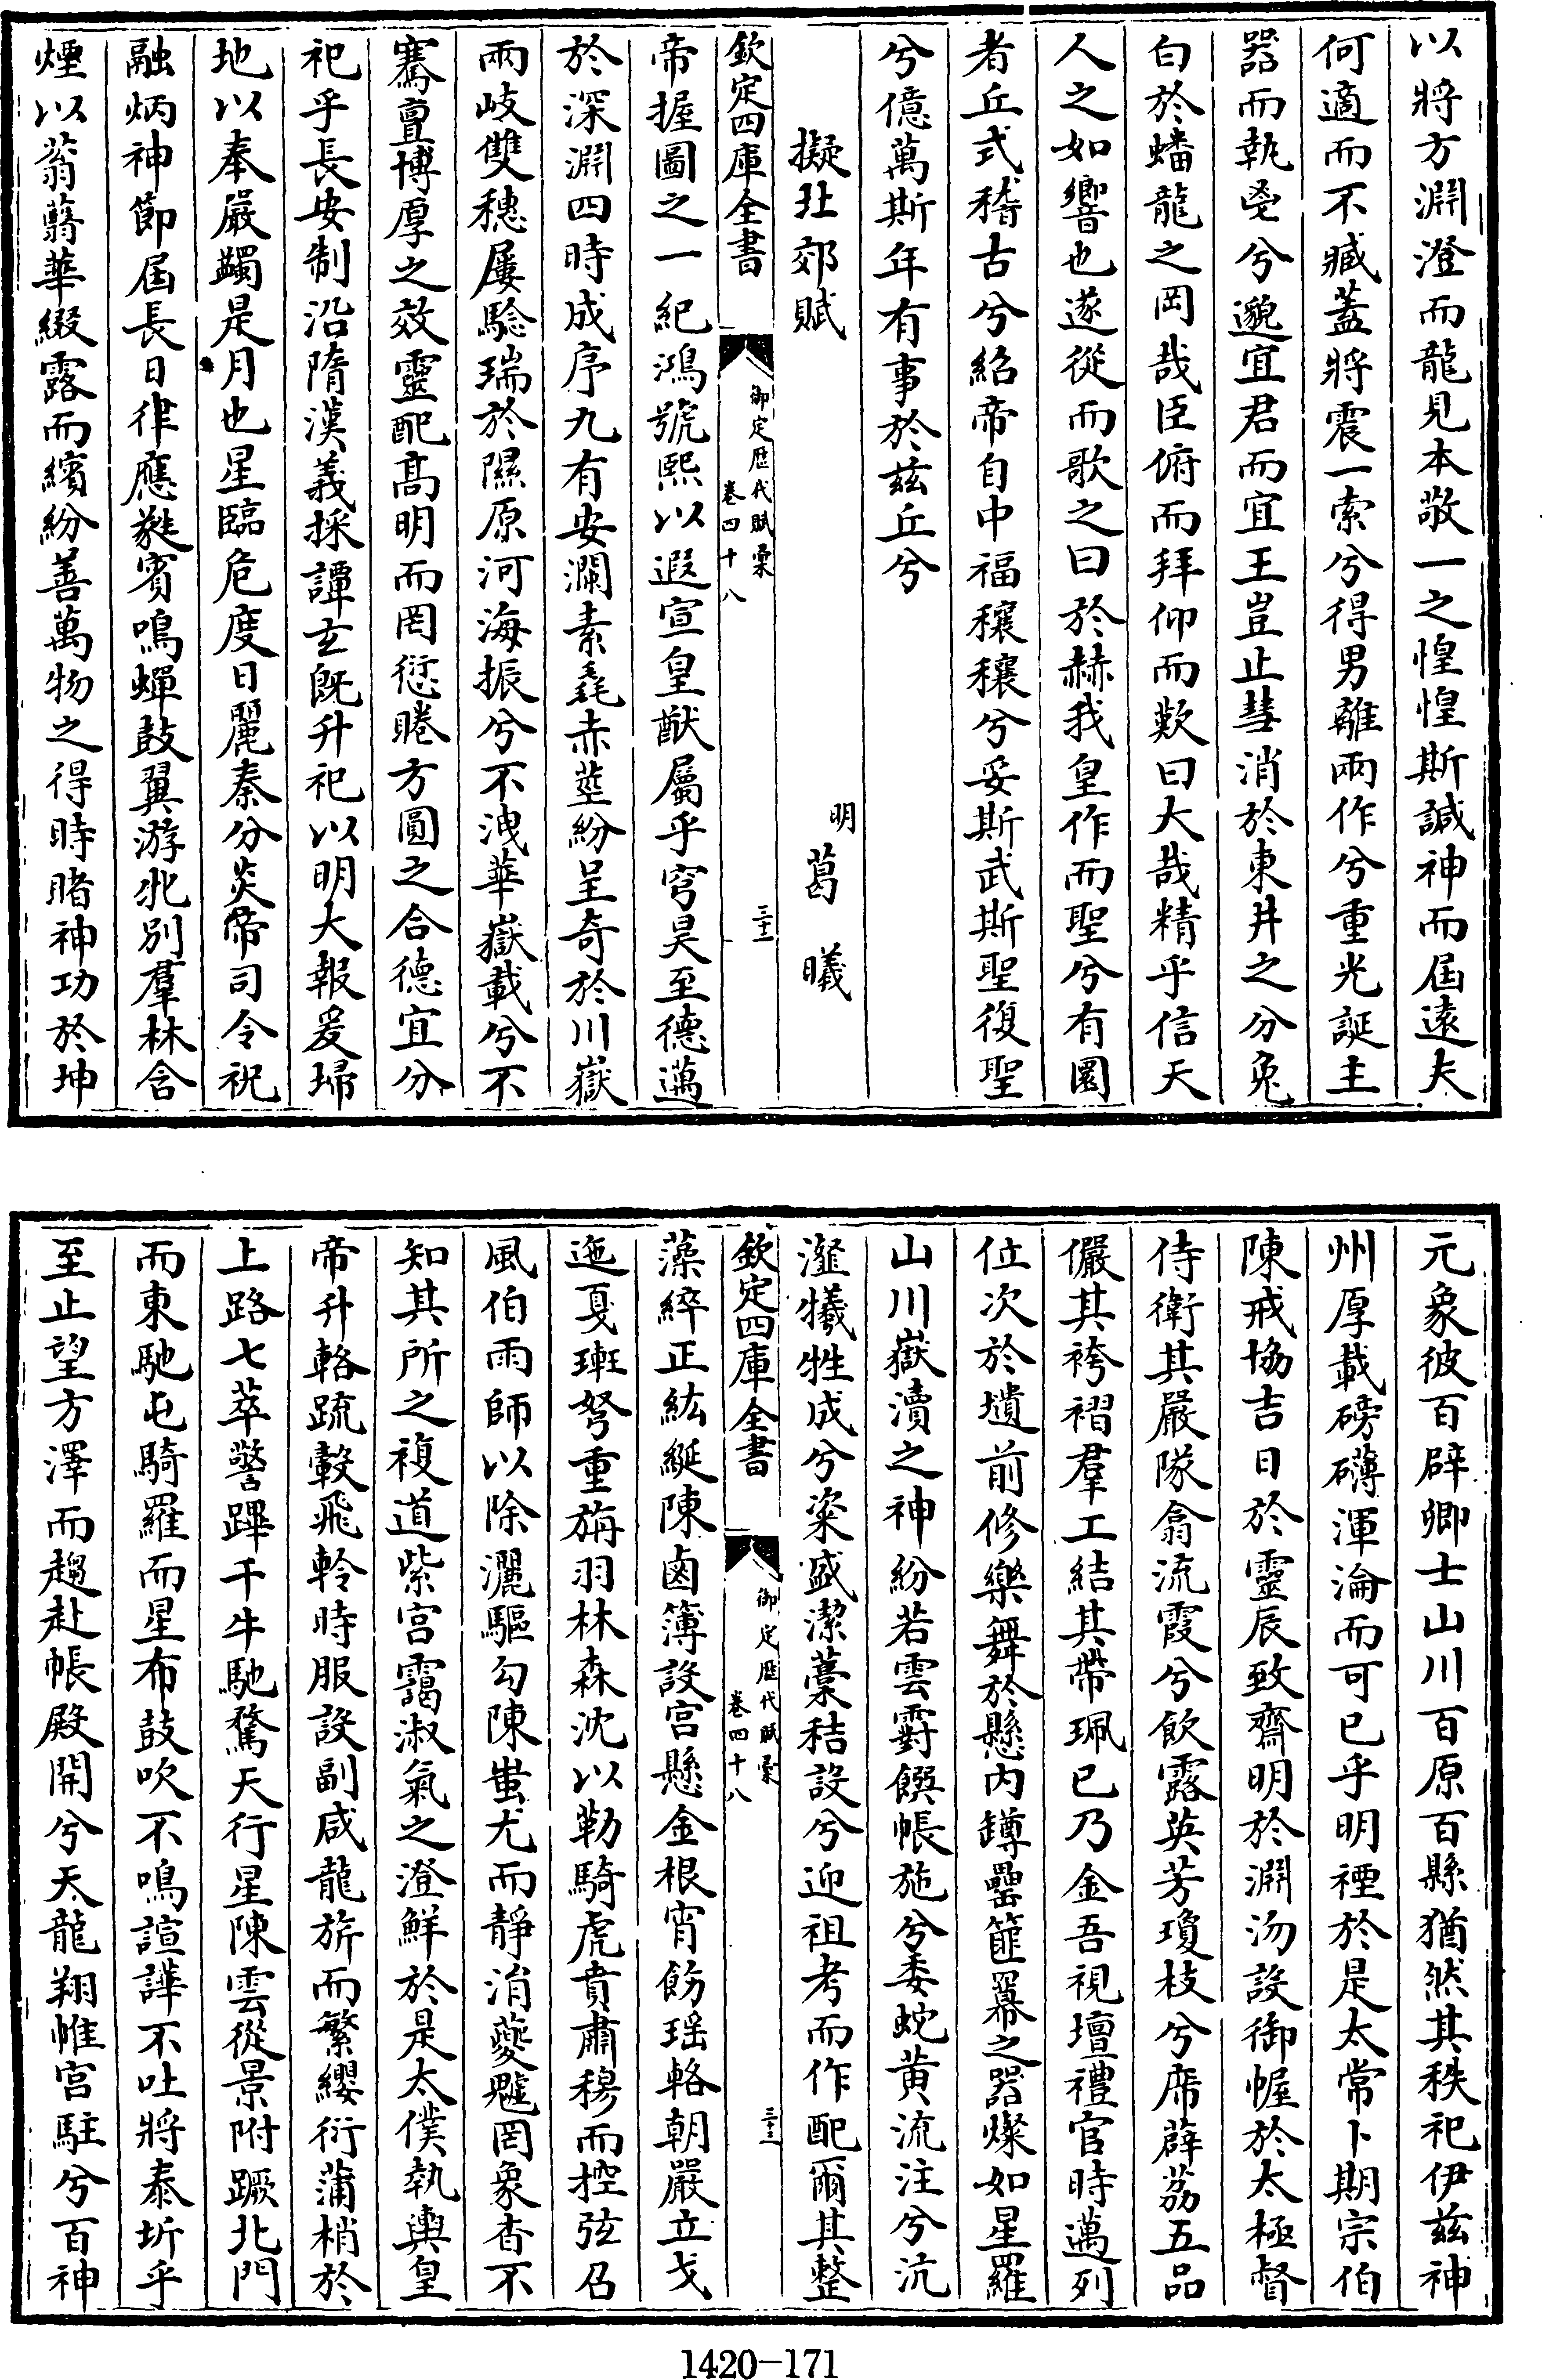 以將方淵澄而龍見本敬一之惶惶斯諴神而屆遠夫
何適而不臧蓋將震一索兮得男離兩作兮重光誕主
器而執鬯兮邈宜君而宜王豈止彗消於東井之分兔
白於蟠龍之岡哉臣俯而拜仰而歎曰大哉精乎信天
人之如響也遂從而歌之曰於赫我皇作而聖兮有圜
者丘式稽古兮紹帝自中福穰穰兮妥斯武斯聖復聖
兮億萬斯年有事於兹丘兮
擬北郊賦
明 葛曦
欽定四庫全書
御定歴代賦彙
卷四十八
三十一
帝握圖之一紀鴻號熙以遐宣皇猷屬乎穹昊至德邁
於深淵四時成序九有安瀾素毳赤莖紛呈奇於川嶽
兩岐雙穗屢騐瑞於隰原河海振兮不洩華嶽載兮不
騫亶博厚之效靈配髙明而罔愆睠方圓之合德宜分
祀乎長安制沿隋漢義採譚玄既升祀以明大報爰埽
地以奉嚴蠲是月也星臨危度日麗秦分炎帝司令祝
融炳神節屆長日律應蕤賓鳴蟬鼓翼游牝別羣林含
煙以蓊蘙華綴露而繽紛善萬物之得時賭神功於坤
元象彼百辟卿士山川百原百縣猶然其秩祀伊兹神
州厚載磅礴渾淪而可已乎明禋於是太常卜期宗伯
陳戒協吉日於靈辰致齋明於淵沕設御幄於太極督
侍衛其嚴隊翕流霞兮飲露英芳瓊枝兮席薜荔五品
儼其袴褶羣工結其帶珮已乃金吾視壇禮官時邁列
位次於壝前修樂舞於懸内罇罍篚羃之器燦如星羅
山川嶽瀆之神紛若雲霨饌帳施兮委蛇黄流注兮沆
瀣犧牲成兮粢盛潔藁秸設兮迎祖考而作配爾其整
欽定四庫全書
御定歴代賦彙
卷四十八
三十二
藻綷正紘綖陳鹵簿設宫懸金根宵飭瑶輅朝嚴立戈
迤戛琟弩重旃羽林森沈以勒騎虎賁肅穆而控弦召
風伯雨師以除灑驅勾陳蚩尤而靜消夔魖罔象杳不
知其所之複道紫宫靄淑氣之澄鮮於是太僕執輿皇
帝升輅疏轂飛軨時服設副咸龍旂而繁纓衍蒲梢於
上路七萃警蹕千牛馳騖天行星陳雲從景附蹶北門
而東馳屯騎羅而星布鼓吹不鳴諠譁不吐將泰圻乎
至止望方澤而趨赴帳殿開兮天龍翔帷宫駐兮百神
1420-171